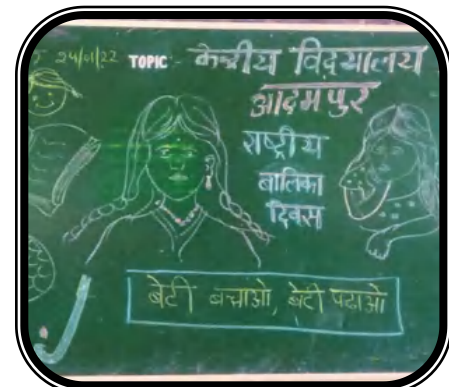 24/01/22 TOPIC - केन्द्रीय विद्यालय
आदमपुर
राष्ट्रीय
बालिका
दिवस
बेटी बचाओ, बेटी पढाओ